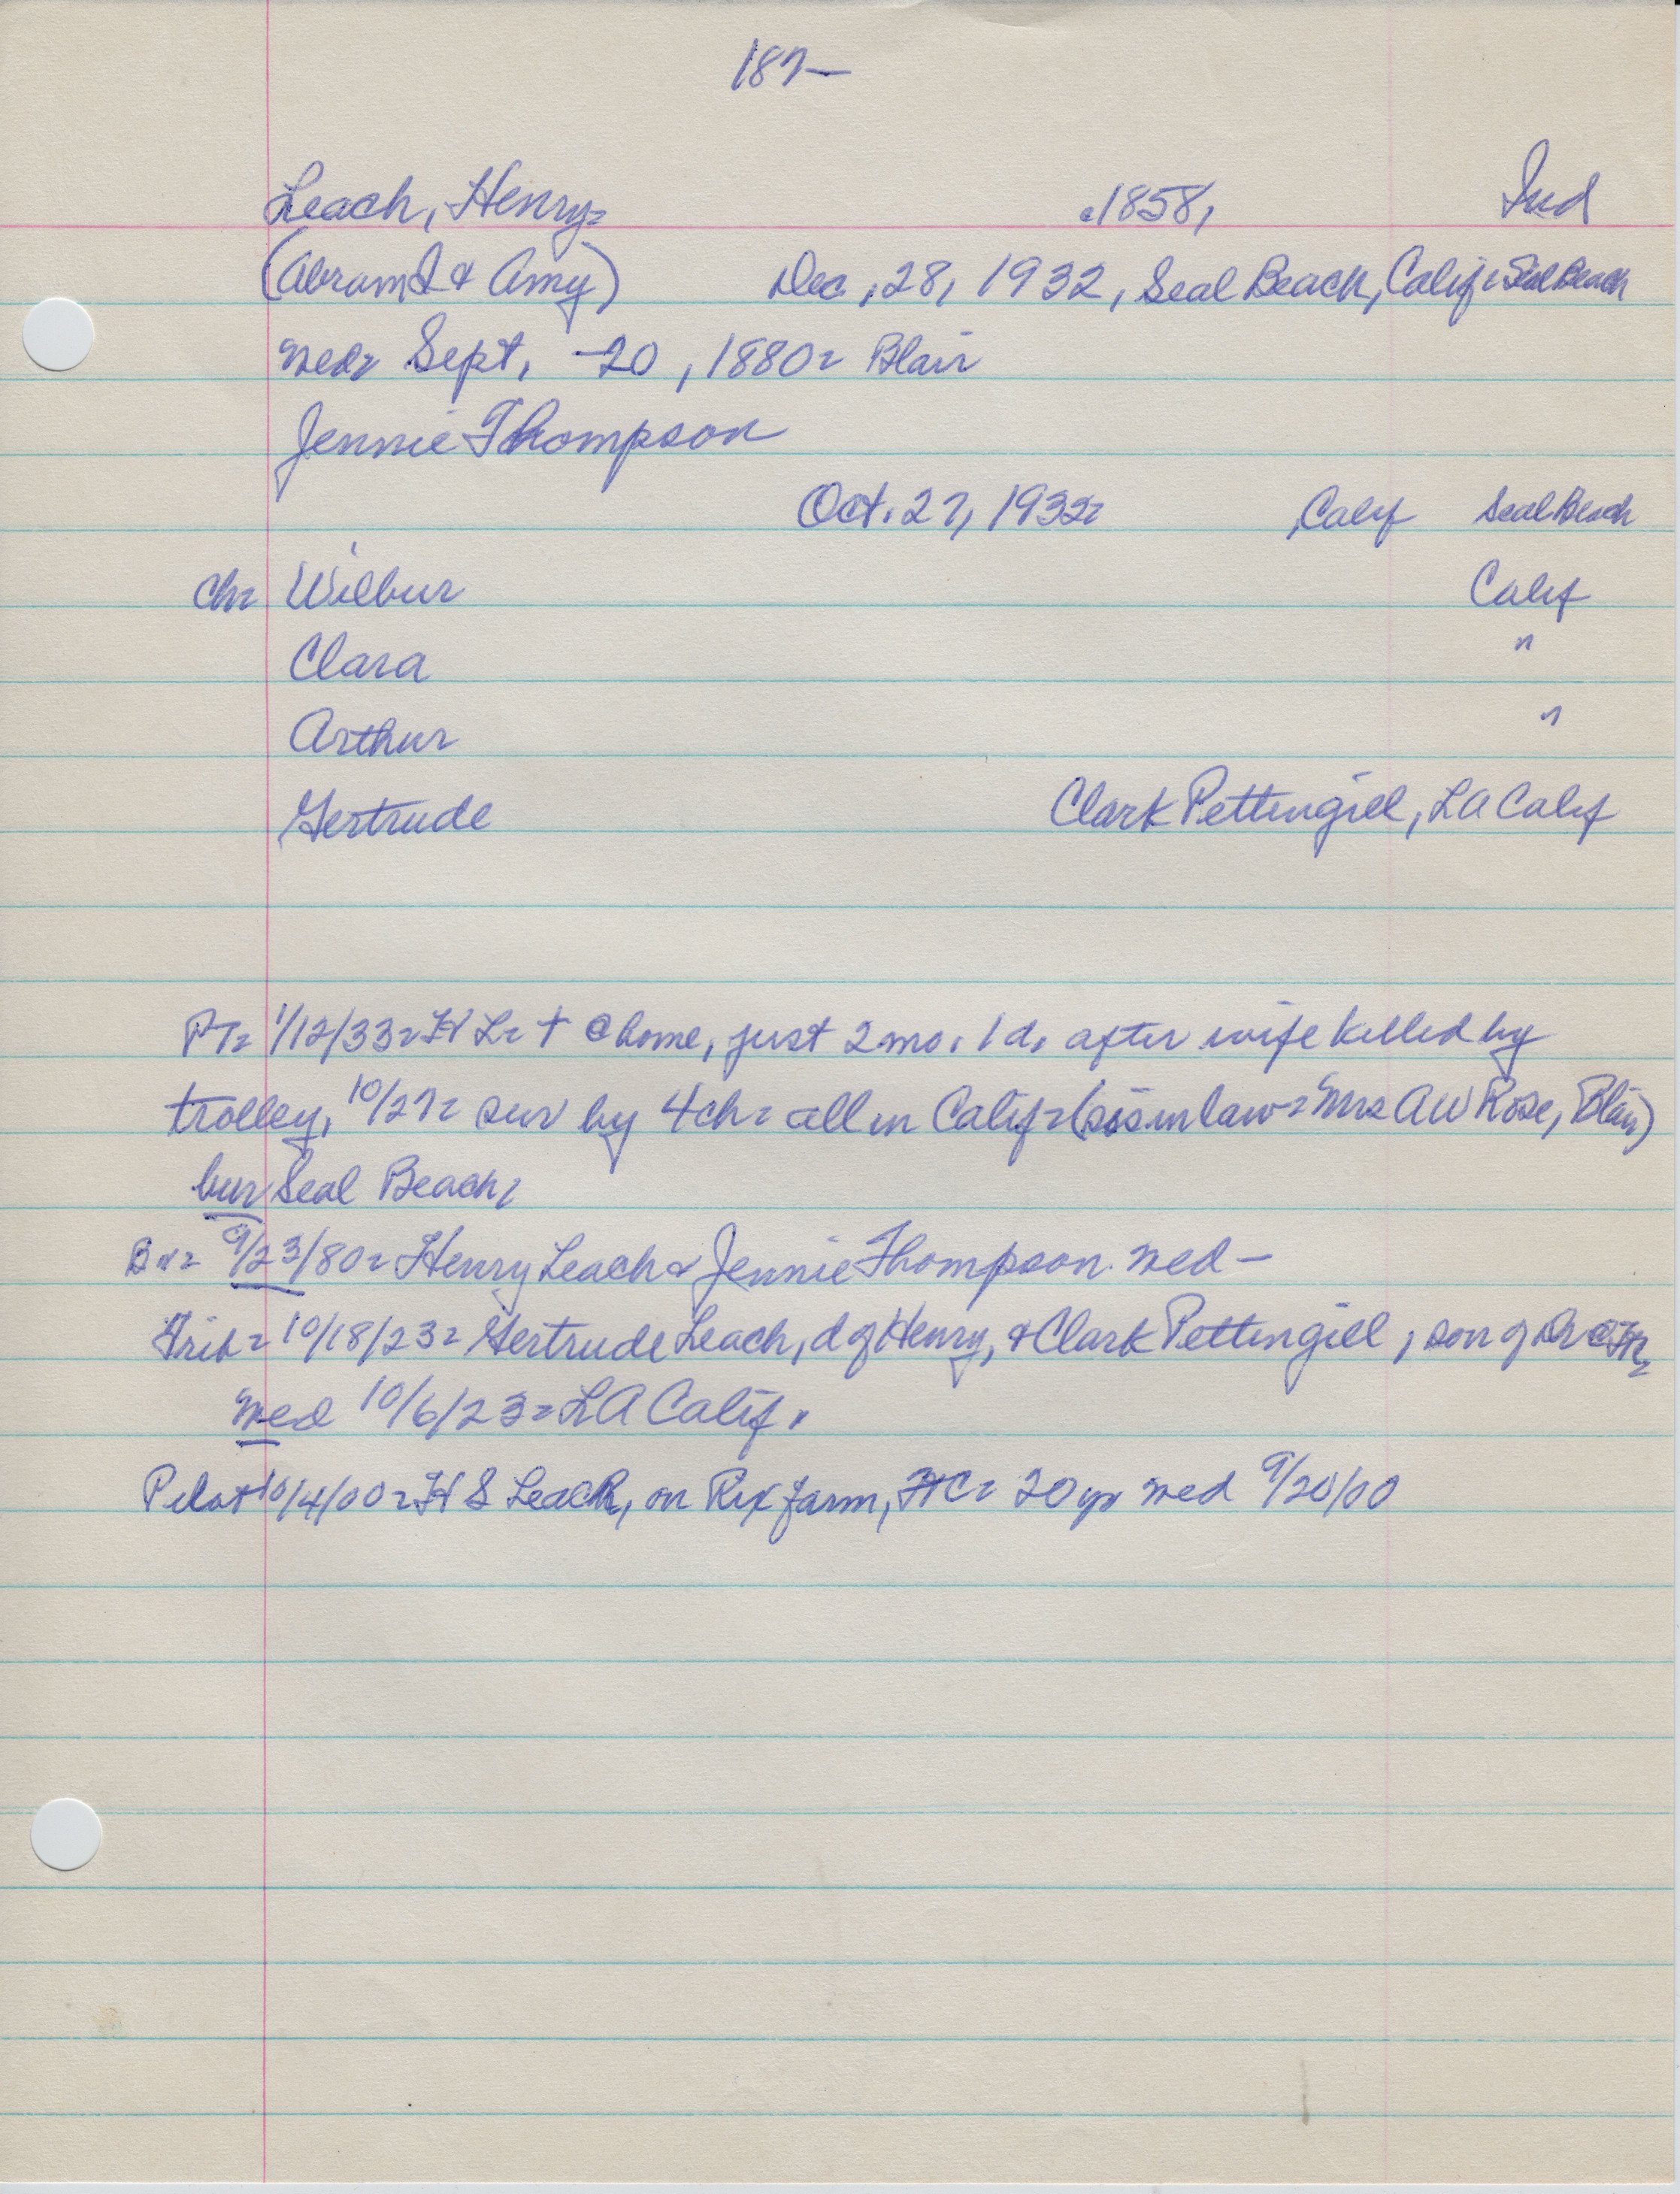 187-
Leach, Henry= c1858, Ind
(Abram I & Amy) Dec. 28, 1932, Seal Beach, Calif= Seal Beach
med= Sept. -20, 1880= Blair
Jennie Thompson
Oct. 27, 1932= , Calif Seal Beach
ch= Wilbur Calif
Clara "
Arthur "
Gertrude Clark Pettingill, LA Calif
PT= 1/12/33= H L= + @ home, just 2 mo. 1 d. after wife killed by
trolley, 10/27= sur by 4 ch= all in Calif= (sis in law= Mrs AW Rose, Blair)
bur Seal Beach,
9/23/80= Henry Leach & Jennie Thompson med-
Trib= 10/18/23= Gertrude Leach, d of Henry, & Clark Pettingill, son of Dr
med 10/6/23= LA Calif.
Pilot 10/4/00= H S Leach, on Rix farm, 20 yr med 9/20/00